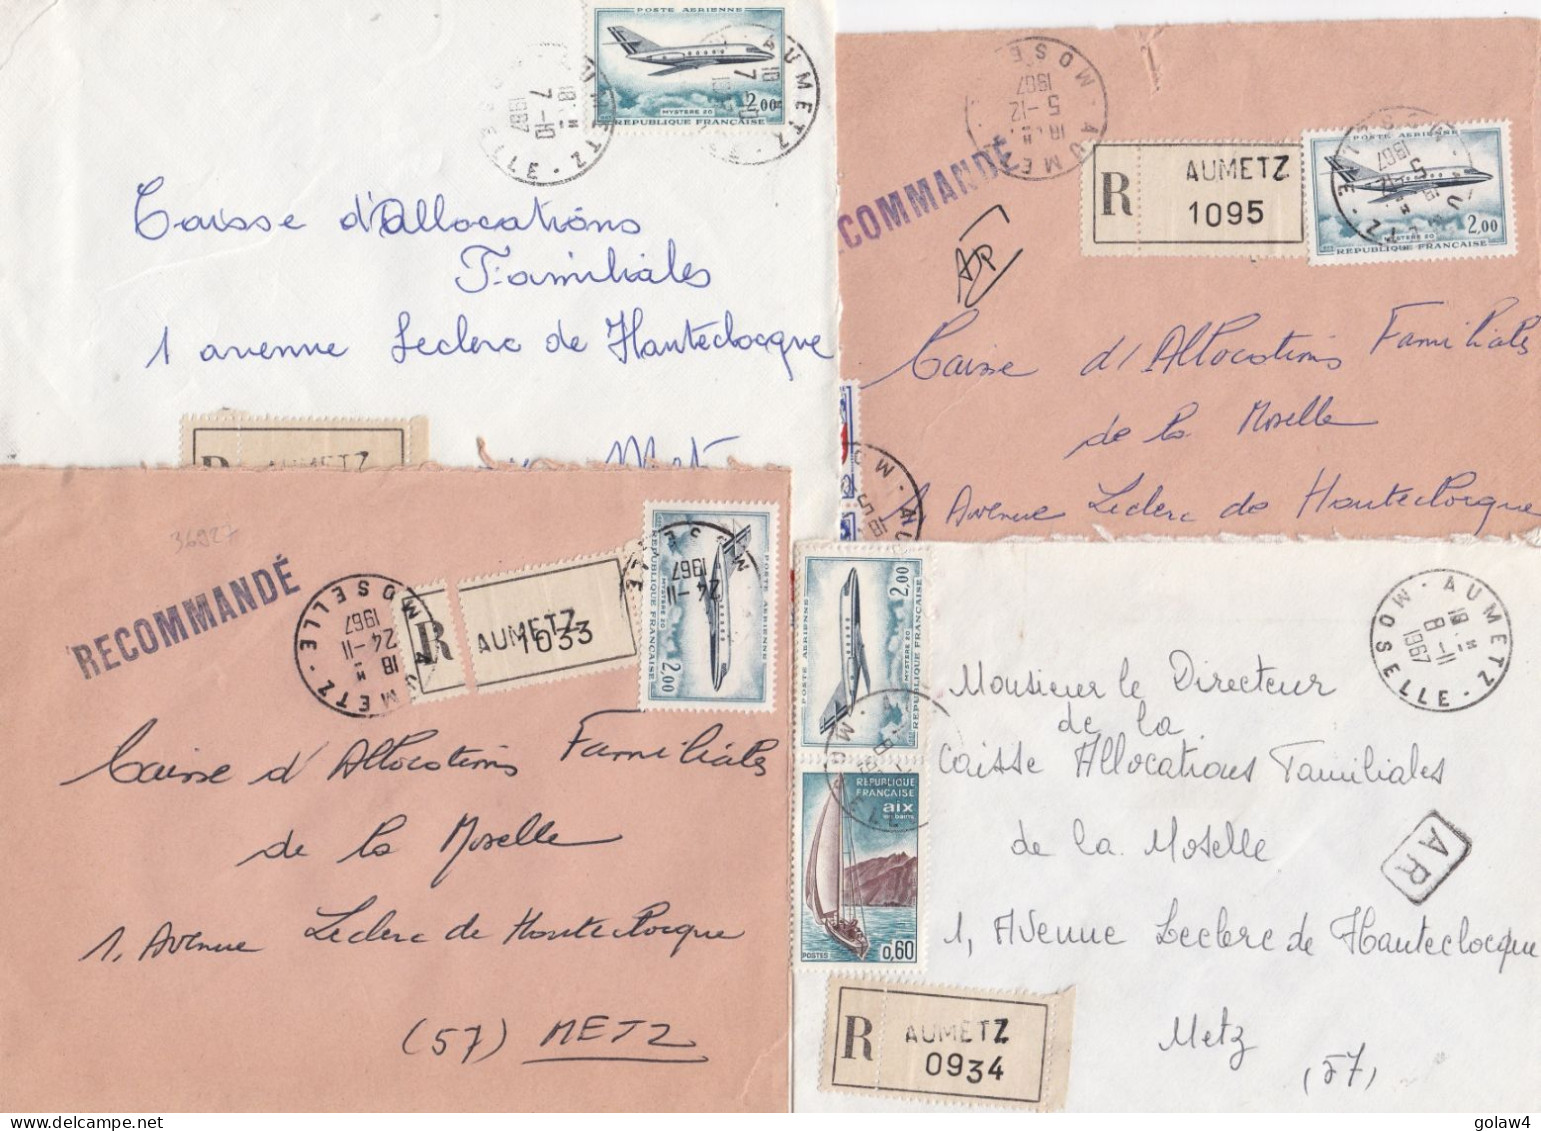 POSTE AERIENNE
MYSTERE 20
2.00
REPUBLIQUE FRANÇAISE
AUMETZ
18 H
7-10
1967
Caisse d'Allocations
Familiales
1 avenue Leclerc de Hauteclocque
R AUMETZ
AUMETZ · MOSE
18 H
5-12
1967
RECOMMANDÉ
R AUMETZ
1095
POSTE AERIENNE
MYSTERE 20
2.00
REPUBLIQUE FRANÇAISE
Caisse d'Allocations Familiales
de la Moselle
1 Avenue Leclerc de Hauteclocque
36927
RECOMMANDÉ
AUMETZ · MOSELLE
18 H
24-11
1967
R AUMETZ
1033
POSTE AERIENNE
MYSTERE 20
2.00
REPUBLIQUE FRANÇAISE
24-11
1967
Caisse d'Allocations Familiales
de la Moselle
1, Avenue Leclerc de Hauteclocque
(57) METZ
POSTE AERIENNE
MYSTERE 20
2.00
REPUBLIQUE FRANÇAISE
REPUBLIQUE
FRANÇAISE
aix
les bains
POSTES 0,60
AUMETZ · MOSELLE
18 H
8-11
1967
Monsieur le Directeur
de la
Caisse Allocations Familiales
de la Moselle
AR
1, Avenue Leclerc de Hauteclocque
Metz
(57)
R AUMETZ
0934
golaw4